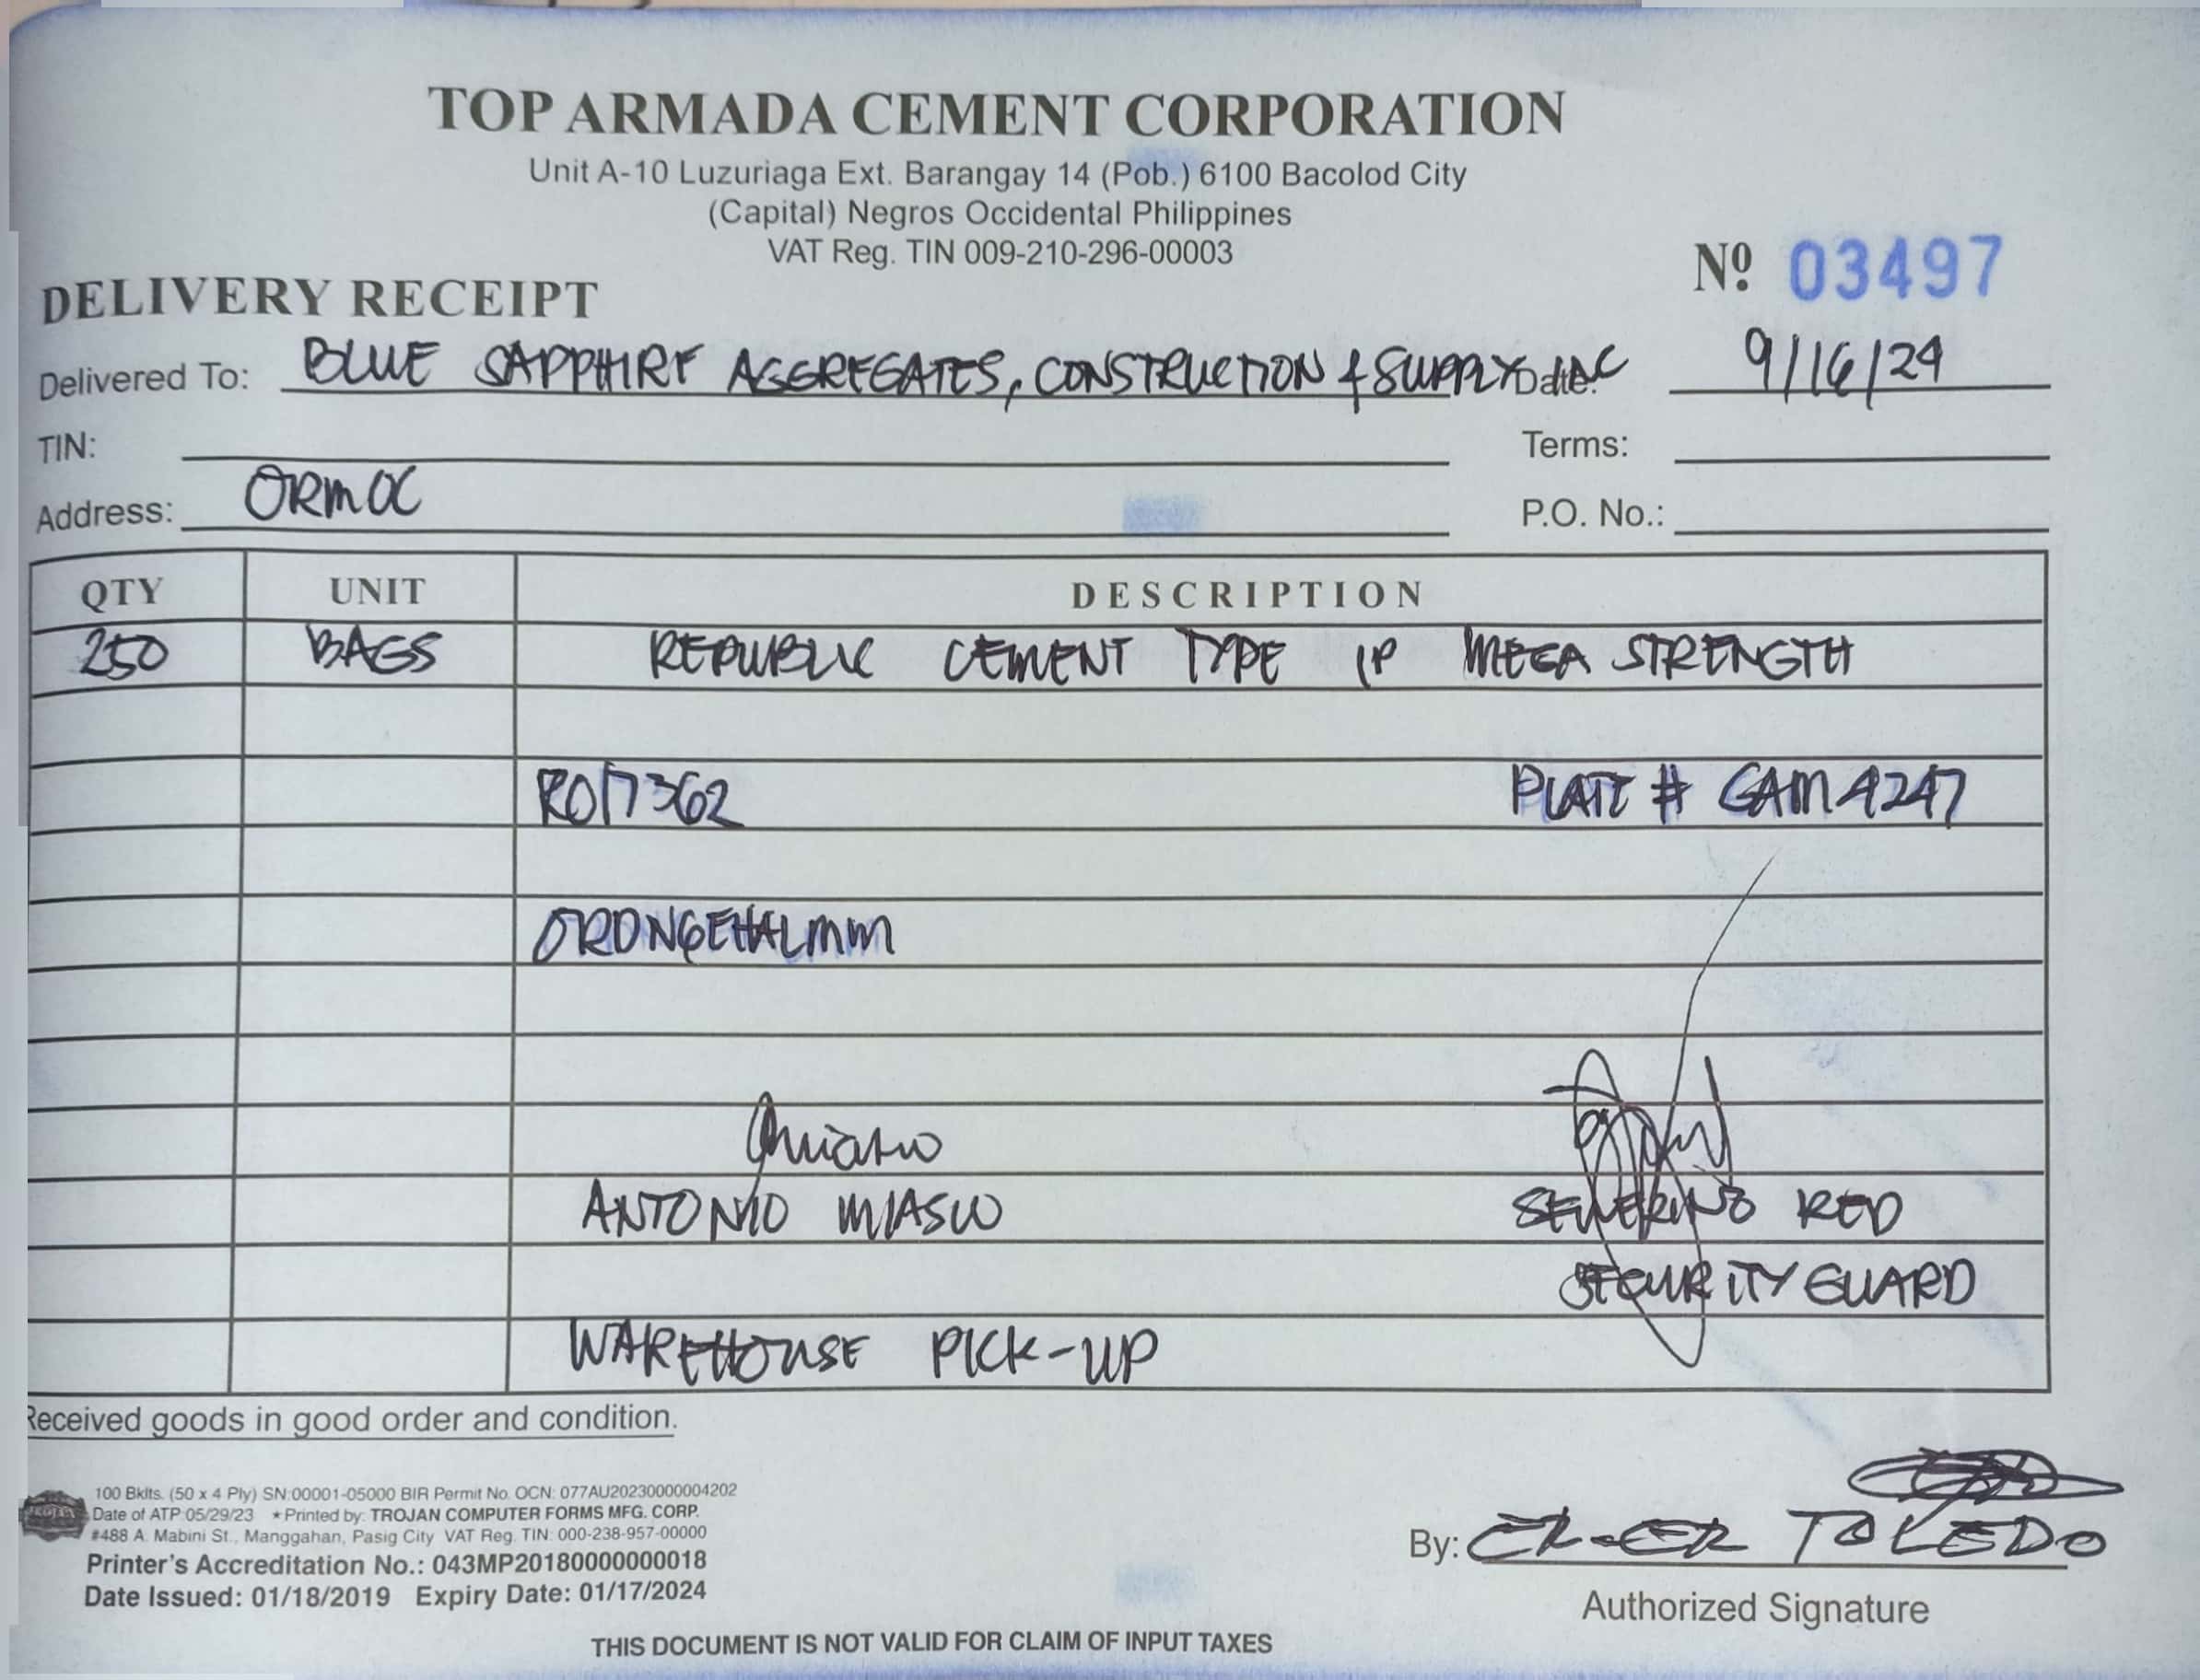 TOP ARMADA CEMENT CORPORATION
Unit A-10 Luzuriaga Ext. Barangay 14 (Pob.) 6100 Bacolod City
(Capital) Negros Occidental Philippines
VAT Reg. TIN 009-210-296-00003
Nº 03497
DELIVERY RECEIPT
Delivered To: BLUE SAPPHIRE AGGREGATES, CONSTRUCTION & SUPPLY INC Date: 9/16/24
TIN: Terms:
Address: ORMOC P.O. No.:
QTY UNIT DESCRIPTION
250 BAGS REPUBLIC CEMENT TYPE 1P MEGA STRENGTH
RO17362 PLATE # GAM4247
ORDNGEHALMM
ANTONIO SEVERINO RED
SECURITY GUARD
WAREHOUSE PICK-UP
Received goods in good order and condition.
100 Bklts. (50 x 4 Ply) SN:00001-05000 BIR Permit No. OCN: 077AU20230000004202
Date of ATP:05/29/23 ★Printed by: TROJAN COMPUTER FORMS MFG. CORP.
#488 A. Mabini St., Manggahan, Pasig City VAT Reg. TIN: 000-238-957-00000
Printer's Accreditation No.: 043MP20180000000018
Date Issued: 01/18/2019 Expiry Date: 01/17/2024
By: TOLEDO
Authorized Signature
THIS DOCUMENT IS NOT VALID FOR CLAIM OF INPUT TAXES